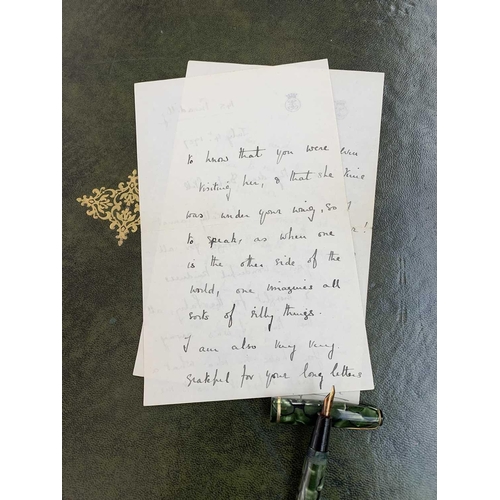 to know that you were
visiting her, & that she
was under your wing, so
to speak, as when one
is the other side of the
world, one imagines all
sorts of silly things.
I am also very very
grateful for your long letters